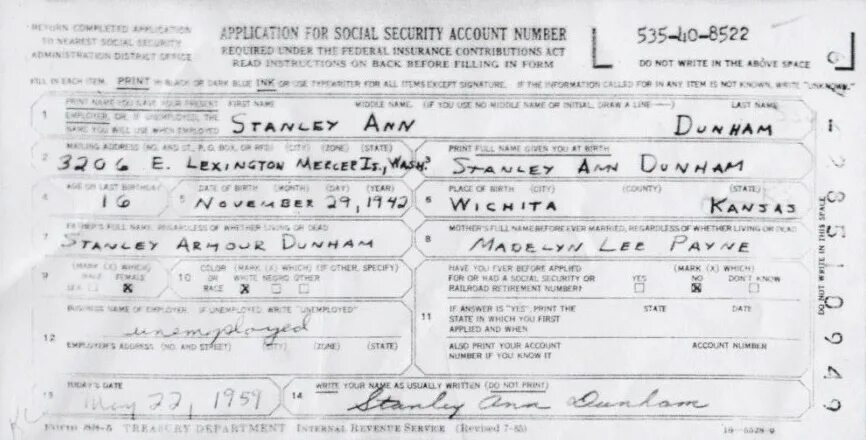 RETURN COMPLETED APPLICATION
TO NEAREST SOCIAL SECURITY
ADMINISTRATION DISTRICT OFFICE
APPLICATION FOR SOCIAL SECURITY ACCOUNT NUMBER
REQUIRED UNDER THE FEDERAL INSURANCE CONTRIBUTIONS ACT
READ INSTRUCTIONS ON BACK BEFORE FILLING IN FORM
535-40-8522
DO NOT WRITE IN THE ABOVE SPACE
FILL IN EACH ITEM. PRINT IN BLACK OR DARK BLUE INK OR USE TYPEWRITER FOR ALL ITEMS EXCEPT SIGNATURE. IF THE INFORMATION CALLED FOR IN ANY ITEM IS NOT KNOWN, WRITE "UNKNOWN."
1 PRINT NAME YOU GAVE YOUR PRESENT
EMPLOYER, OR, IF UNEMPLOYED, THE
NAME YOU WILL USE WHEN EMPLOYED
FIRST NAME MIDDLE NAME (IF YOU USE NO MIDDLE NAME OR INITIAL, DRAW A LINE —) LAST NAME
STANLEY ANN DUNHAM
2 MAILING ADDRESS (NO. AND ST., P. O. BOX, OR RFD) (CITY) (ZONE) (STATE)
3206 E. LEXINGTON MERCER IS., WASH.
3 PRINT FULL NAME GIVEN YOU AT BIRTH
STANLEY ANN DUNHAM
4 AGE ON LAST BIRTHDAY
16
5 DATE OF BIRTH (MONTH) (DAY) (YEAR)
NOVEMBER 29, 1942
6 PLACE OF BIRTH (CITY) (COUNTY) (STATE)
WICHITA KANSAS
7 FATHER'S FULL NAME, REGARDLESS OF WHETHER LIVING OR DEAD
STANLEY ARMOUR DUNHAM
8 MOTHER'S FULL NAME BEFORE EVER MARRIED, REGARDLESS OF WHETHER LIVING OR DEAD
MADELYN LEE PAYNE
9 (MARK (X) WHICH)
MALE FEMALE
SEX X
10 COLOR (MARK (X) WHICH) (IF OTHER, SPECIFY)
OR WHITE NEGRO OTHER
RACE X
HAVE YOU EVER BEFORE APPLIED
FOR OR HAD A SOCIAL SECURITY OR
RAILROAD RETIREMENT NUMBER?
(MARK (X) WHICH)
YES NO DON'T KNOW
X
11 IF ANSWER IS "YES", PRINT THE
STATE IN WHICH YOU FIRST
APPLIED AND WHEN
STATE DATE
ALSO PRINT YOUR ACCOUNT
NUMBER IF YOU KNOW IT
ACCOUNT NUMBER
12 BUSINESS NAME OF EMPLOYER. IF UNEMPLOYED, WRITE "UNEMPLOYED"
unemployed
EMPLOYER'S ADDRESS (NO. AND STREET) (CITY) (ZONE) (STATE)
13 TODAY'S DATE
May 22, 1959
14 WRITE YOUR NAME AS USUALLY WRITTEN (DO NOT PRINT)
Stanley Ann Dunham
TREASURY DEPARTMENT INTERNAL REVENUE SERVICE
DO NOT WRITE IN THIS SPACE